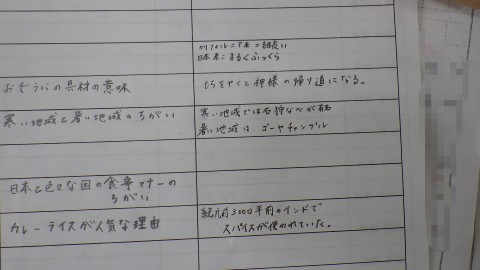 カリフォルニア米＝細長い
日本米＝まるくふっくら
おぞうにの具材の意味
もちをやくと神様の帰り道になる。
寒い地域と暑い地域のちがい
寒い地域では石狩なべが有名
暑い地域は、ゴーヤチャンプル
日本と色々な国の食事マナーの
ちがい
カレーライスが人気な理由
紀元前3000年前のインドで
スパイスが使われていた。